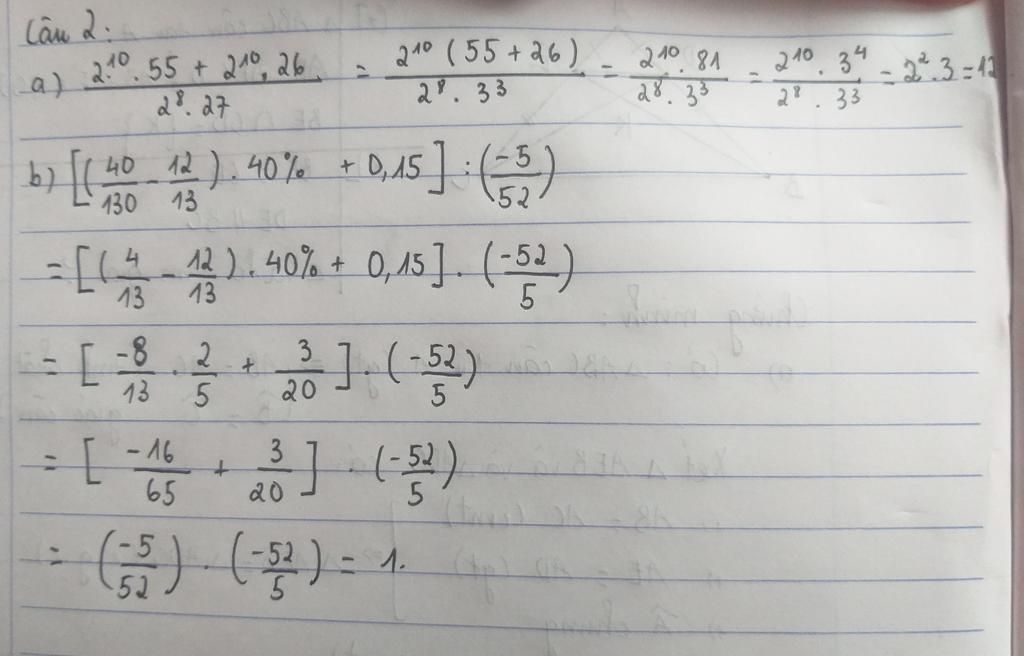 Câu 2:
a) \frac{2^{10}.55 + 2^{10}.26}{2^8.27} = \frac{2^{10}(55+26)}{2^8.3^3} = \frac{2^{10}.81}{2^8.3^3} = \frac{2^{10}.3^4}{2^8.3^3} = 2^2.3 = 12
b) [(\frac{40}{130} - \frac{12}{13}).40% + 0,15] : (\frac{-5}{52})
= [(\frac{4}{13} - \frac{12}{13}).40% + 0,15].(\frac{-52}{5})
= [\frac{-8}{13}.\frac{2}{5} + \frac{3}{20}].(\frac{-52}{5})
= [\frac{-16}{65} + \frac{3}{20}].(\frac{-52}{5})
= (\frac{-5}{52}).(\frac{-52}{5}) = 1.